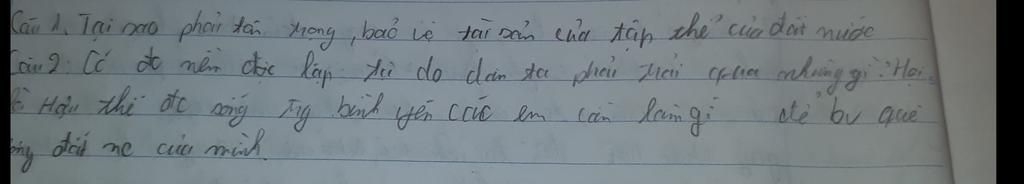 Câu 1. Tại sao phải tôn trọng, bảo vệ tài sản của tập thể của đất nước
Câu 2: Có đc nền độc lập tự do dân ta phải trải qua những gì? Họ
Hậu thế đc sống trg bình yên các em cần làm gì để bv quê
đất nc của mình.